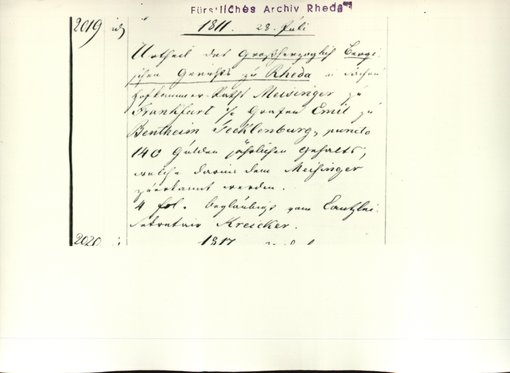 Fürstliches Archiv Rheda
2019
1811. 28. Juli
Urtheil des Großherzoglich Bergi-
schen Gerichts zu Rheda in Sachen
Hofkammer-Raths Meisinger zu
Frankfurt ./. Grafen Emil zu
Bentheim Tecklenburg, puncto
140 Gulden jährlichen Gehalts,
welche darin dem Meisinger
zuerkannt werden.
4 fol. beglaubigt vom Canzlei-
sekretair Kreicker.
2020 1817